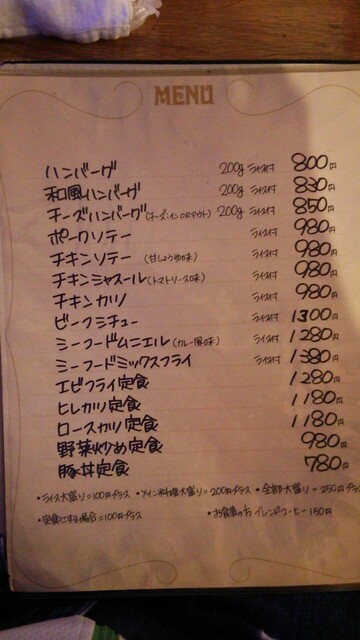 MENU
ハンバーグ 200g ライス付 800円
和風ハンバーグ 200g ライス付 830円
チーズハンバーグ(チーズ:インORアウト) 200g ライス付 850円
ポークソテー ライス付 980円
チキンソテー (甘しょうゆ味) ライス付 980円
チキンシャスール(トマトソース味) ライス付 980円
チキンカツ ライス付 980円
ビーフシチュー ライス付 1300円
シーフードムニエル(カレー風味) ライス付 1280円
シーフードミックスフライ ライス付 1380円
エビフライ定食 1280円
ヒレカツ定食 1180円
ロースカツ定食 1180円
野菜炒め定食 980円
豚丼定食 780円
・ライス大盛り=100円プラス ・メイン料理大盛り=200円プラス ・全部大盛り=250円プラス
・定食にする場合=100円プラス ・お食事の方 ブレンドコーヒー150円